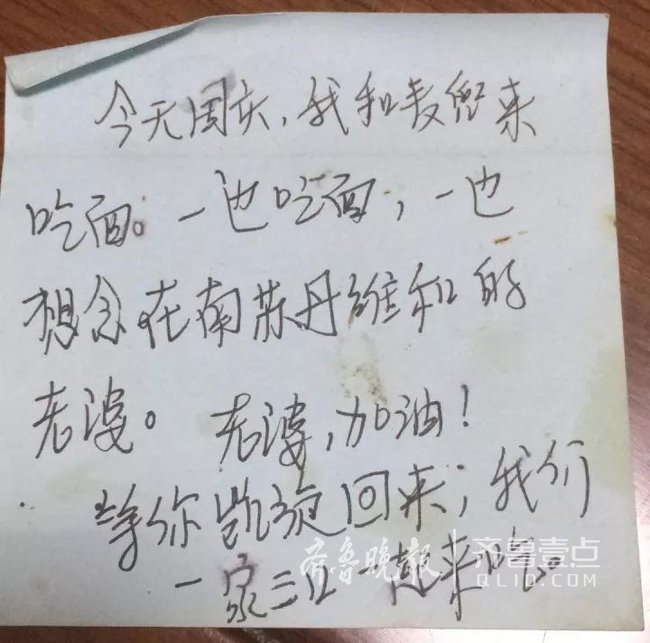 今天周末,我和麦兜来
吃面。一边吃面,一边
想念在南苏丹维和的
老婆。老婆,加油!
等你凯旋回来,我们
一家三口一起来吃。
齐鲁晚报 齐鲁壹点
QLID.COM